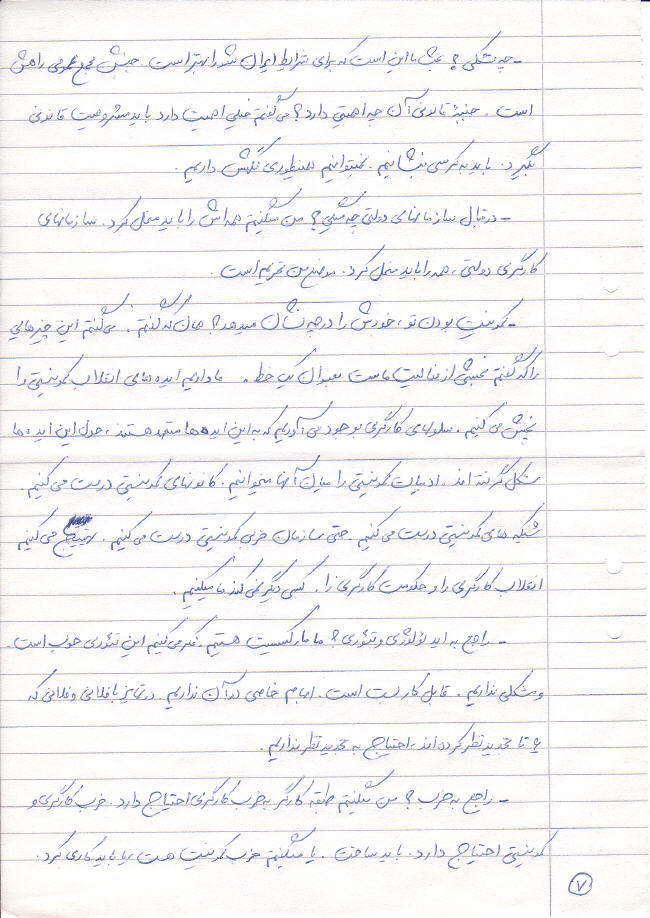 - چه شکلی؟ بحث ما این است که برای شرایط ایران شورا بهتر است. جنبش مجمع عمومی راهش
است. جنبهٔ قانونی آن چه اهمیتی دارد؟ میگفتم خیلی اهمیت دارد باید مشروعیت قانونی
بگیرد. باید به کرسی بنشانیم. نمیتوانیم همینطوری نگهش داریم.
- در قبال سازمانهای دولتی چه میگی؟ من میگفتم همه‌اش را باید منحل کرد. سازمانهای
کارگری دولتی، همه را باید منحل کرد. موضع من تحریم است.
- کمونیست بودن تو، خودش را در چه نشان میدهد؟ همان که گفتم. میگفتم این چیزهایی
را که گفتم بخشی از فعالیت ماست بعنوان یک خط. ما داریم ایده‌های انقلاب کمونیستی را
پخش می کنیم. سلولهای کارگری بوجود می آوریم که به این ایده‌ها متعهد هستند، حول این ایده ها
شکل گرفته اند. ادبیات کمونیستی را میان آنها میخوانیم. کانونهای کمونیستی درست می کنیم.
شبکه های کمونیستی درست می کنیم. حتی سازمان حزبی کمونیستی درست می کنیم. تهییج می کنیم
انقلاب کارگری را و حکومت کارگری را. کسی دیگر نمی کند ما میکنیم.
- راجع به ایدئولوژی و تئوری؟ ما مارکسیست هستیم. فکر می کنیم این تئوری خوب است.
و مشکلی نداریم. قابل کاربست است. ابهام خاصی در آن نداریم. در تمایز با فلانی و فلانی که
۶ تا تجدید نظر کرده اند، احتیاج به تجدید نظر نداریم.
- راجع به حزب؟ من میگفتم طبقه کارگر به حزب کارگری احتیاج دارد. حزب کارگری و
کمونیستی احتیاج دارد. باید ساخت. یا میگفتم حزب کمونیست هست، یا باید کاری کرد.
۷